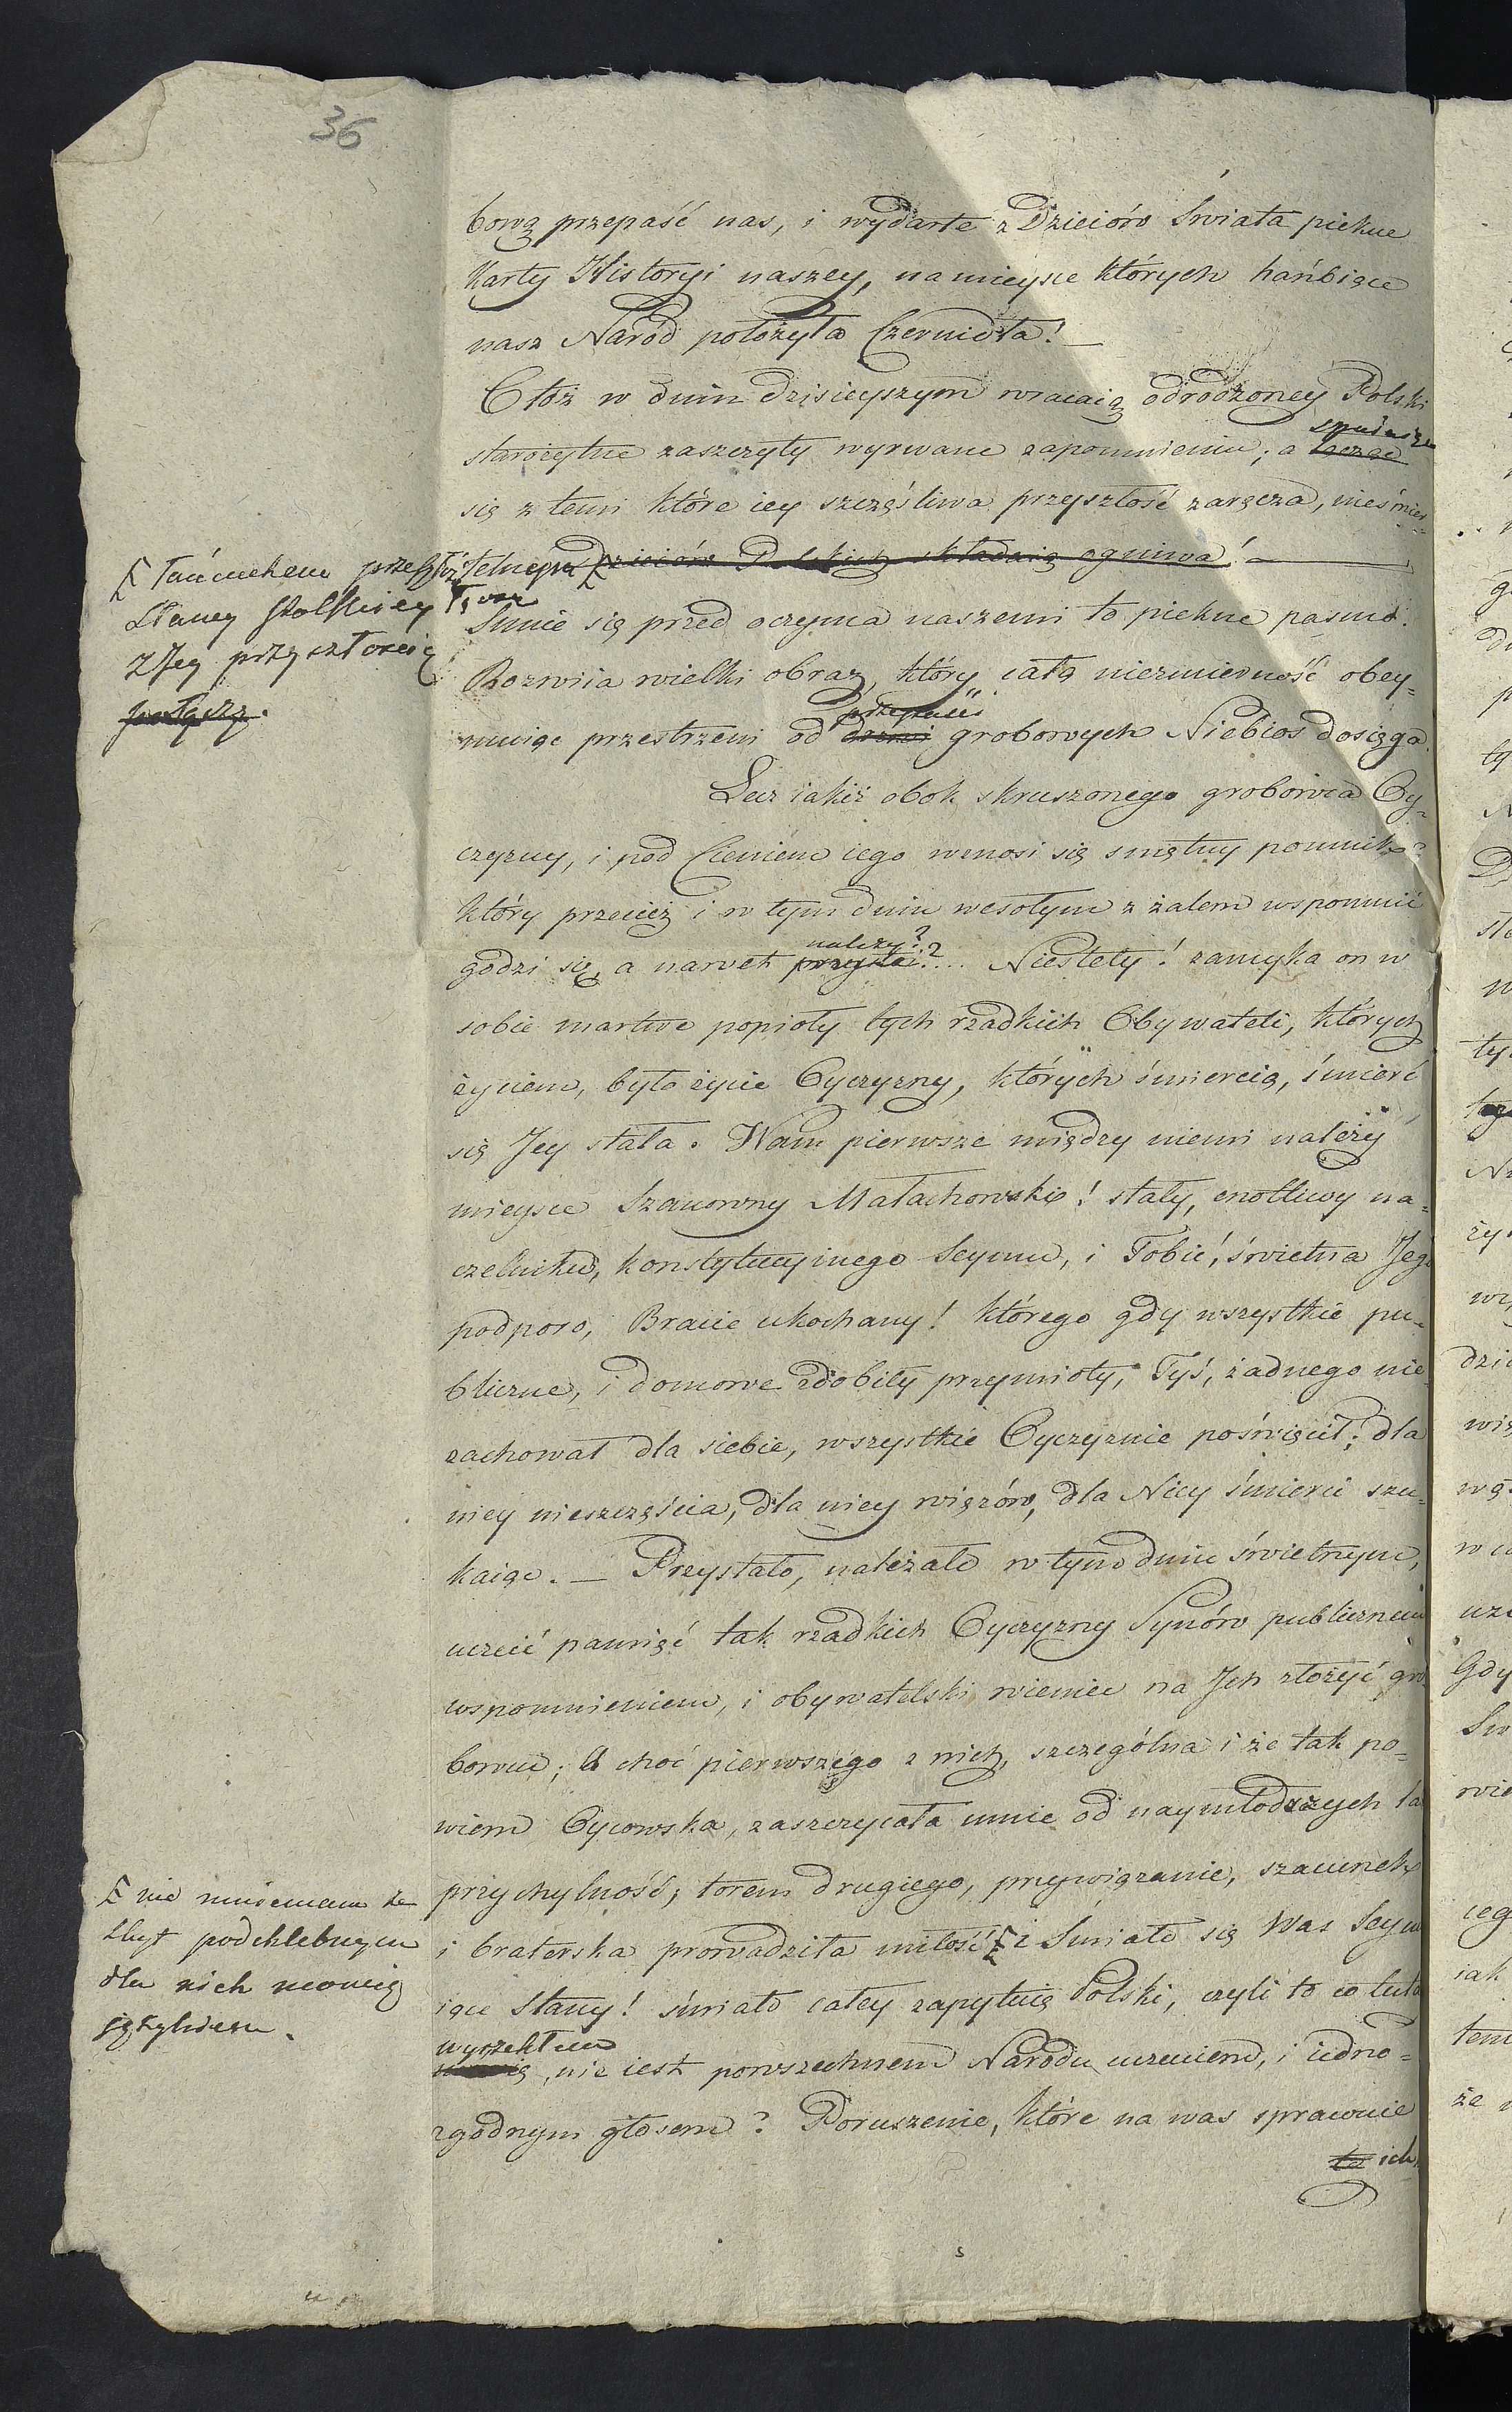 36
bową przepaść nas, i wydarte z Dzieiów Świata piekne
Karty Historyi naszey, na mieysce których hańbiące
nasz Naród położyła Czernidła! —
Otóż w dniu dzisieyszym wracaią odrodzoney Polski
starożytne zaszczyty wyrwane zapomnieniu; a łącząc
się z temi które iey szczęśliwa przyszłość zaręcza, nieśmier-
telnych Dzieiów Polskich składaią ogniwa! —
Łańcuchem przeszłości
Sławy Polskiey
z Jey przyszłością
połączą.
Snuie się przed oczyma naszemi to piekne pasmo.
Rozwiia wielki obraz, który całą niezmierność obey-
muiąc przestrzeni od przepaści grobowych Niebios dosięga.
Lecz iakiż obok skruszonego grobowca Oy-
czyzny, i pod Cieniem iego wznosi się smętny pomnik?
który przecież i w tym dniu wesołym z żalem wspomnić
należy?
godzi się, a nawet przystoi?... Niestety! zamyka on w
sobie martwe popioły tych rzadkich Obywateli, których
życiem, było życie Oyczyzny, których śmiercią, śmierć
się Jey stała. Wam pierwsze między niemi należy
mieysce Szanowny Małachowski! stały, cnotliwy na-
czelniku, konstytucyinego Seymu, i Tobie, świetna Jego
podporo, Bracie ukochany! którego gdy wszystkie pu-
bliczne, i domowe zdobiły przymioty, Tyś, żadnego nie
zachował dla siebie, wszystkie Oyczyznie poświęcił; dla
niey nieszczęścia, dla niey więzów, dla Niey śmierci szu-
kaiąc. — Przystało, należało w tym dniu świetnym,
uczcić pamięć tak rzadkich Oyczyzny Synów publicznem
wspomnieniem, i obywatelski wieniec na Ich złożyć gro-
bowcu; A choć pierwszego z nich, szczególna i że tak po-
wiem Oycowska, zaszczycała mnie od naymłodszych lat
przychylność; torem drugiego, przywiązanie, szacunek
i braterska prowadziła miłość i Śmiało się Was Seymu-
nie mniemam że
zbyt podchlebnym
dla nich mowię
językiem.
iące Stany! śmiało całey zapytuię Polski, czyli to co tuto
wyrzekłem
nie iest powszechnem Narodu uczuciem, i iedno-
zgodnym głosem? Poruszenie, które na was sprawuie
to ich